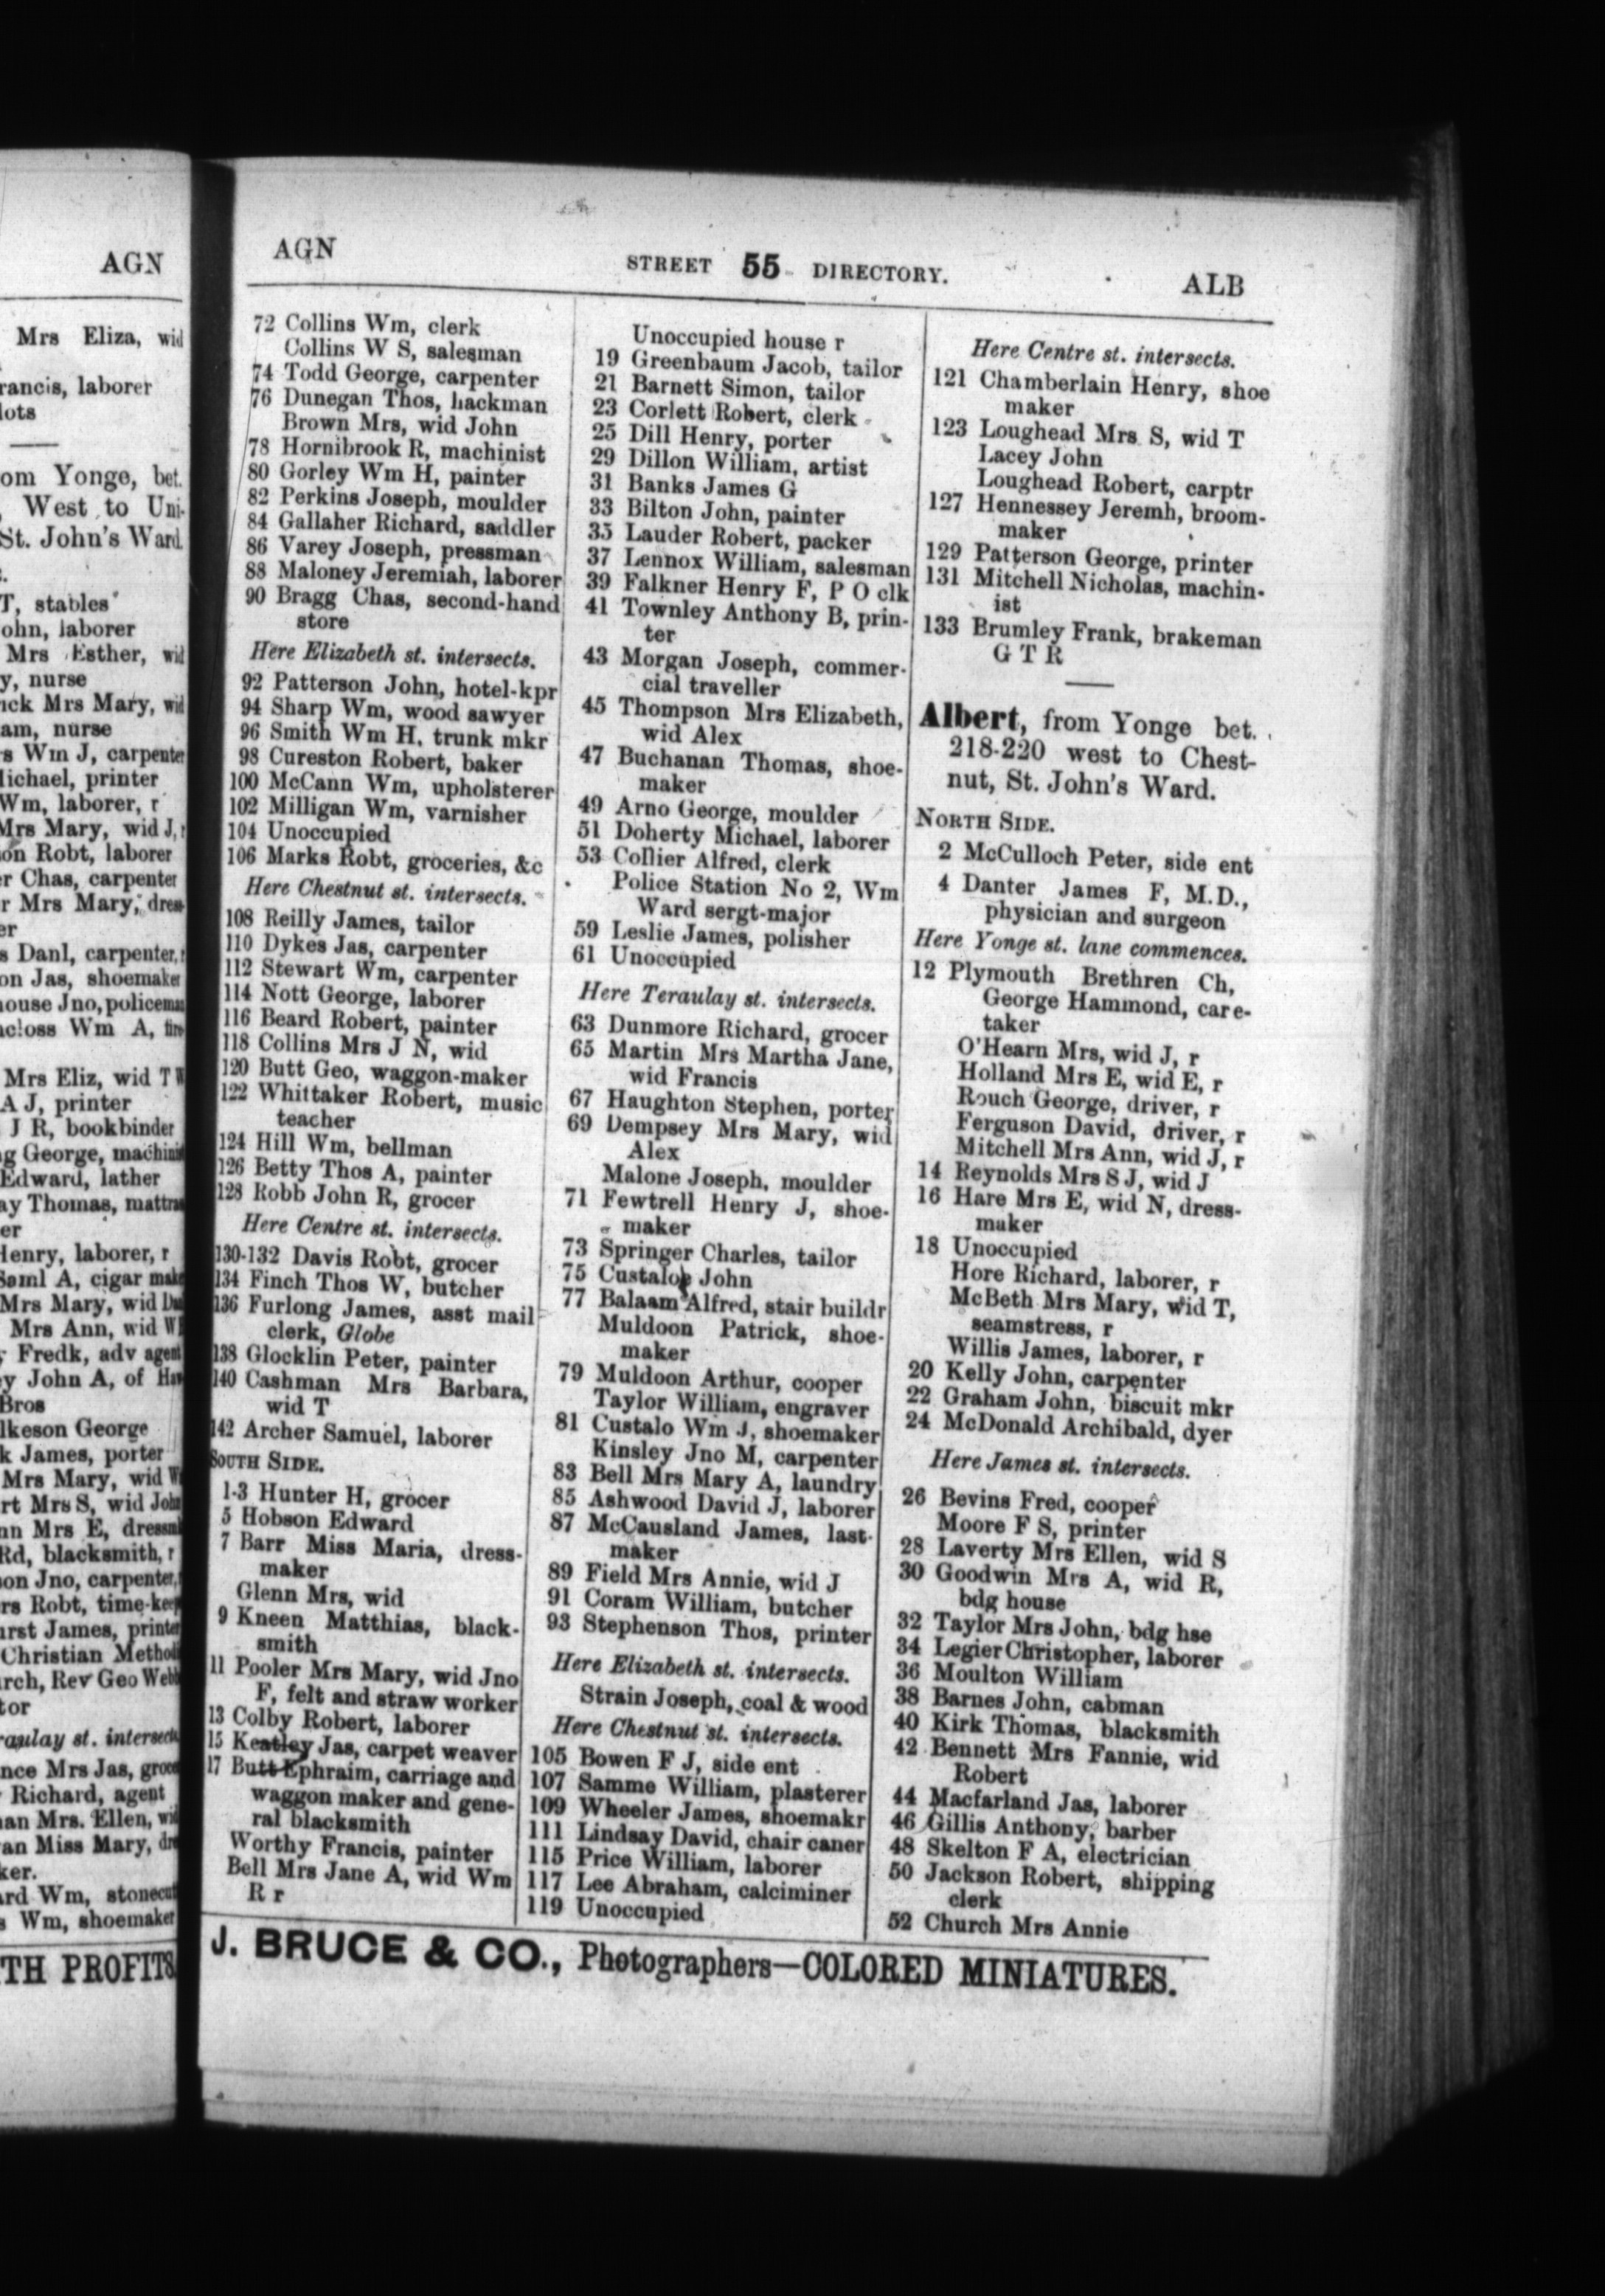 AGN
Mrs Eliza, wid
rancis, laborer
lots
om Yonge, bet.
West to Uni-
St. John's Ward.
T, stables
ohn, laborer
Mrs Esther, wid
y, nurse
ick Mrs Mary, wid
am, nurse
s Wm J, carpenter
lichael, printer
Wm, laborer, r
Mrs Mary, wid J, r
on Robt, laborer
er Chas, carpenter
r Mrs Mary, dress-
er
s Danl, carpenter, r
on Jas, shoemaker
house Jno, policeman
acloss Wm A, tins
Mrs Eliz, wid T W
A J, printer
J R, bookbinder
g George, machinist
Edward, lather
ay Thomas, mattrass
er
Henry, laborer, r
Saml A, cigar maker
Mrs Mary, wid Danl
Mrs Ann, wid W
Fredk, adv agent
y John A, of
Bros
lkeson George
k James, porter
Mrs Mary, wid W
rt Mrs S, wid John
nn Mrs E, dressmk
Rd, blacksmith, r
on Jno, carpenter, r
rs Robt, time-keep
urst James, printer
Christian Methodi
rch, Rev Geo Webb
tor
raulay st. intersects
nce Mrs Jas, grocer
Richard, agent
an Mrs. Ellen, wid
an Miss Mary, dre
ker.
ard Wm, stonecut
s Wm, shoemaker
TH PROFITS.
AGN
STREET 55 DIRECTORY.
ALB
72 Collins Wm, clerk
Collins W S, salesman
74 Todd George, carpenter
76 Dunegan Thos, hackman
Brown Mrs, wid John
78 Hornibrook R, machinist
80 Gorley Wm H, painter
82 Perkins Joseph, moulder
84 Gallaher Richard, saddler
86 Varey Joseph, pressman
88 Maloney Jeremiah, laborer
90 Bragg Chas, second-hand
store
Here Elizabeth st. intersects.
92 Patterson John, hotel-kpr
94 Sharp Wm, wood sawyer
96 Smith Wm H, trunk mkr
98 Cureston Robert, baker
100 McCann Wm, upholsterer
102 Milligan Wm, varnisher
104 Unoccupied
106 Marks Robt, groceries, &c
Here Chestnut st. intersects.
108 Reilly James, tailor
110 Dykes Jas, carpenter
112 Stewart Wm, carpenter
114 Nott George, laborer
116 Beard Robert, painter
118 Collins Mrs J N, wid
120 Butt Geo, waggon-maker
122 Whittaker Robert, music
teacher
124 Hill Wm, bellman
126 Betty Thos A, painter
128 Robb John R, grocer
Here Centre st. intersects.
130-132 Davis Robt, grocer
134 Finch Thos W, butcher
136 Furlong James, asst mail
clerk, Globe
138 Glocklin Peter, painter
140 Cashman Mrs Barbara,
wid T
142 Archer Samuel, laborer
SOUTH SIDE.
1-3 Hunter H, grocer
5 Hobson Edward
7 Barr Miss Maria, dress-
maker
Glenn Mrs, wid
9 Kneen Matthias, black-
smith
11 Pooler Mrs Mary, wid Jno
F, felt and straw worker
13 Colby Robert, laborer
15 Keatley Jas, carpet weaver
17 Butt Ephraim, carriage and
waggon maker and gene-
ral blacksmith
Worthy Francis, painter
Bell Mrs Jane A, wid Wm
R r
Unoccupied house r
19 Greenbaum Jacob, tailor
21 Barnett Simon, tailor
23 Corlett Robert, clerk
25 Dill Henry, porter
29 Dillon William, artist
31 Banks James G
33 Bilton John, painter
35 Lauder Robert, packer
37 Lennox William, salesman
39 Falkner Henry F, P O clk
41 Townley Anthony B, prin-
ter
43 Morgan Joseph, commer-
cial traveller
45 Thompson Mrs Elizabeth,
wid Alex
47 Buchanan Thomas, shoe-
maker
49 Arno George, moulder
51 Doherty Michael, laborer
53 Collier Alfred, clerk
Police Station No 2, Wm
Ward sergt-major
59 Leslie James, polisher
61 Unoccupied
Here Teraulay st. intersects.
63 Dunmore Richard, grocer
65 Martin Mrs Martha Jane,
wid Francis
67 Haughton Stephen, porter
69 Dempsey Mrs Mary, wid
Alex
Malone Joseph, moulder
71 Fewtrell Henry J, shoe-
maker
73 Springer Charles, tailor
75 Custaloe John
77 Balaam Alfred, stair buildr
Muldoon Patrick, shoe-
maker
79 Muldoon Arthur, cooper
Taylor William, engraver
81 Custalo Wm J, shoemaker
Kinsley Jno M, carpenter
83 Bell Mrs Mary A, laundry
85 Ashwood David J, laborer
87 McCausland James, last-
maker
89 Field Mrs Annie, wid J
91 Coram William, butcher
93 Stephenson Thos, printer
Here Elizabeth st. intersects.
Strain Joseph, coal & wood
Here Chestnut st. intersects.
105 Bowen F J, side ent
107 Samme William, plasterer
109 Wheeler James, shoemakr
111 Lindsay David, chair caner
115 Price William, laborer
117 Lee Abraham, calciminer
119 Unoccupied
Here Centre st. intersects.
121 Chamberlain Henry, shoe
maker
123 Loughead Mrs S, wid T
Lacey John
Loughead Robert, carptr
127 Hennessey Jeremh, broom-
maker
129 Patterson George, printer
131 Mitchell Nicholas, machin-
ist
133 Brumley Frank, brakeman
G T R
Albert, from Yonge bet.
218-220 west to Chest-
nut, St. John's Ward.
NORTH SIDE.
2 McCulloch Peter, side ent
4 Danter James F, M.D.,
physician and surgeon
Here Yonge st. lane commences.
12 Plymouth Brethren Ch,
George Hammond, care-
taker
O'Hearn Mrs, wid J, r
Holland Mrs E, wid E, r
Rouch George, driver, r
Ferguson David, driver, r
Mitchell Mrs Ann, wid J, r
14 Reynolds Mrs S J, wid J
16 Hare Mrs E, wid N, dress-
maker
18 Unoccupied
Hore Richard, laborer, r
McBeth Mrs Mary, wid T,
seamstress, r
Willis James, laborer, r
20 Kelly John, carpenter
22 Graham John, biscuit mkr
24 McDonald Archibald, dyer
Here James st. intersects.
26 Bevins Fred, cooper
Moore F S, printer
28 Laverty Mrs Ellen, wid S
30 Goodwin Mrs A, wid R,
bdg house
32 Taylor Mrs John, bdg hse
34 Legier Christopher, laborer
36 Moulton William
38 Barnes John, cabman
40 Kirk Thomas, blacksmith
42 Bennett Mrs Fannie, wid
Robert
44 Macfarland Jas, laborer
46 Gillis Anthony, barber
48 Skelton F A, electrician
50 Jackson Robert, shipping
clerk
52 Church Mrs Annie
J. BRUCE & CO., Photographers—COLORED MINIATURES.